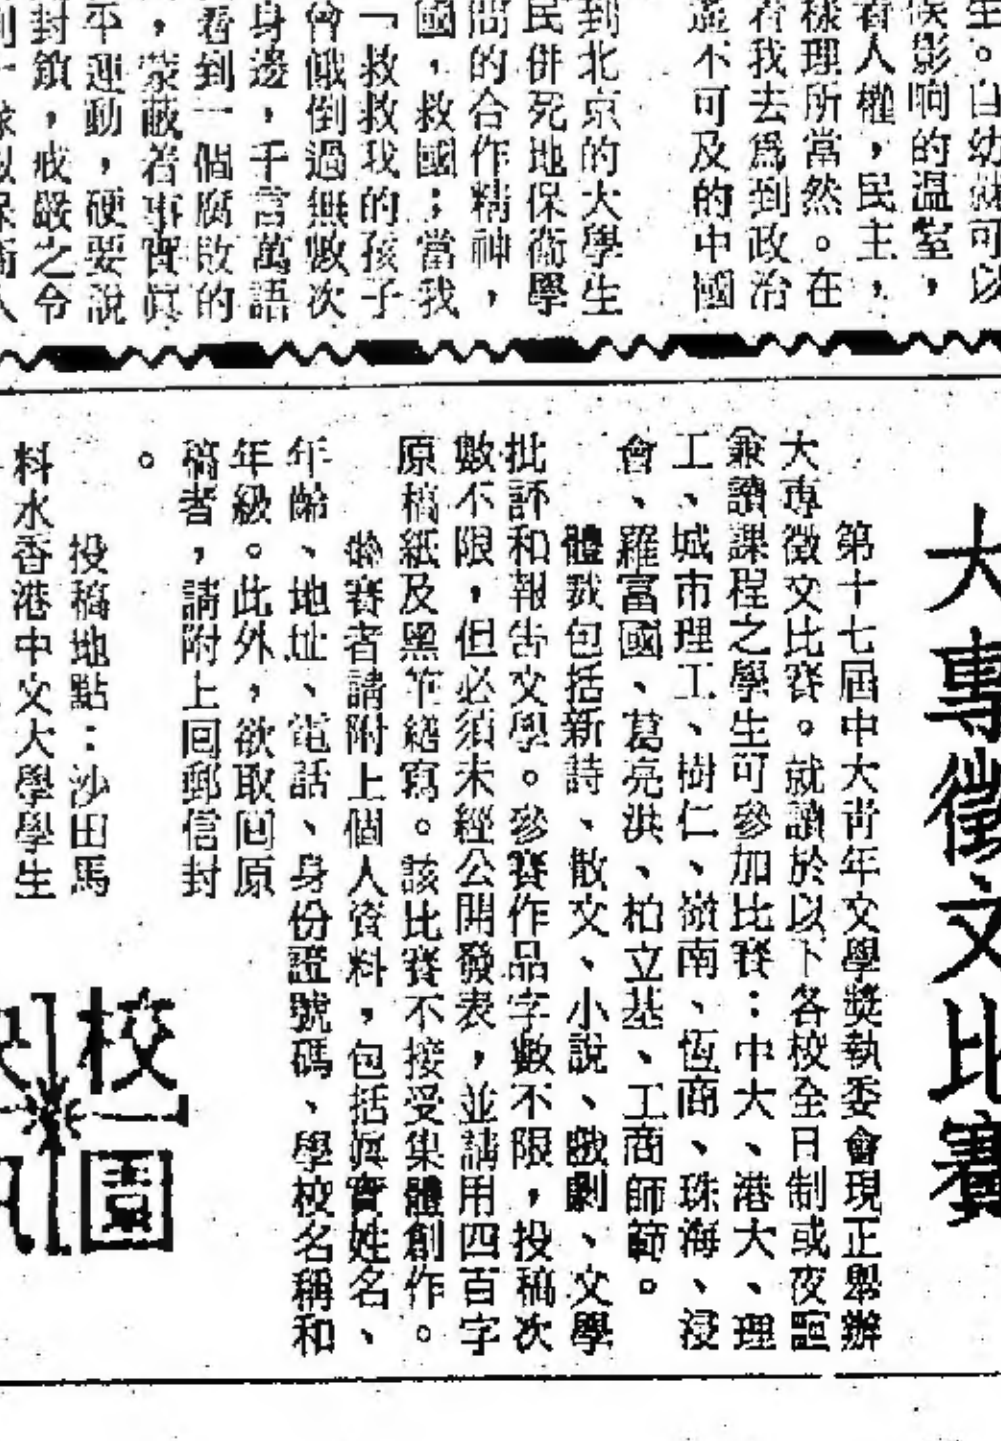 生。自幼就可以
影响的溫室，
看人權，民主，
樣理所當然。在
着我去爲到政治
遙不可及的中國
到北京的大學生
民併死地保衞學
問的合作精神，
國，救國；當我
「救救我的孩子
曾餓倒過無數次
身邊，千言萬語
看到一個腐敗的
，蒙蔽着事實眞
平運動，硬要說
封鎖，戒嚴之令
大專徵文比賽
第十七屆中大靑年文學獎執委會現正舉辦
大專徵文比賽。就讀於以下各校全日制或夜間
兼讀課程之學生可參加比賽：中大、港大、理
工、城市理工、樹仁、嶺南、恆商、珠海、浸
會、羅富國、葛亮洪、柏立基、工商師範。
體裁包括新詩、散文、小說、戲劇、文學
批評和報告文學。參賽作品字數不限，投稿次
數不限，但必須未經公開發表，並請用四百字
原稿紙及黑筆繕寫。該比賽不接受集體創作。
參賽者請附上個人資料，包括眞實姓名、
年齡、地址、電話、身份證號碼、學校名稱和
年級。此外，欲取回原
稿者，請附上回郵信封
。
投稿地點：沙田馬
料水香港中文大學學生
校園